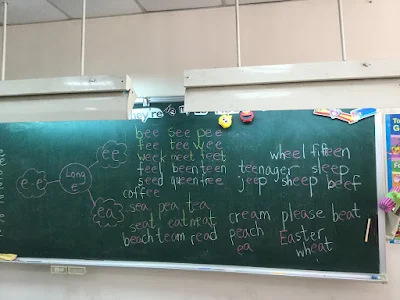 bee see pee
fee tee wee
week meet feet
wheel fifteen
feel been teen teenager sleep
seed queen free jeep sheep beef
coffee
ee
e-e
Long
e
ea
sea pea tea
seat eat meat cream please beat
beach team read peach Easter
ea wheat